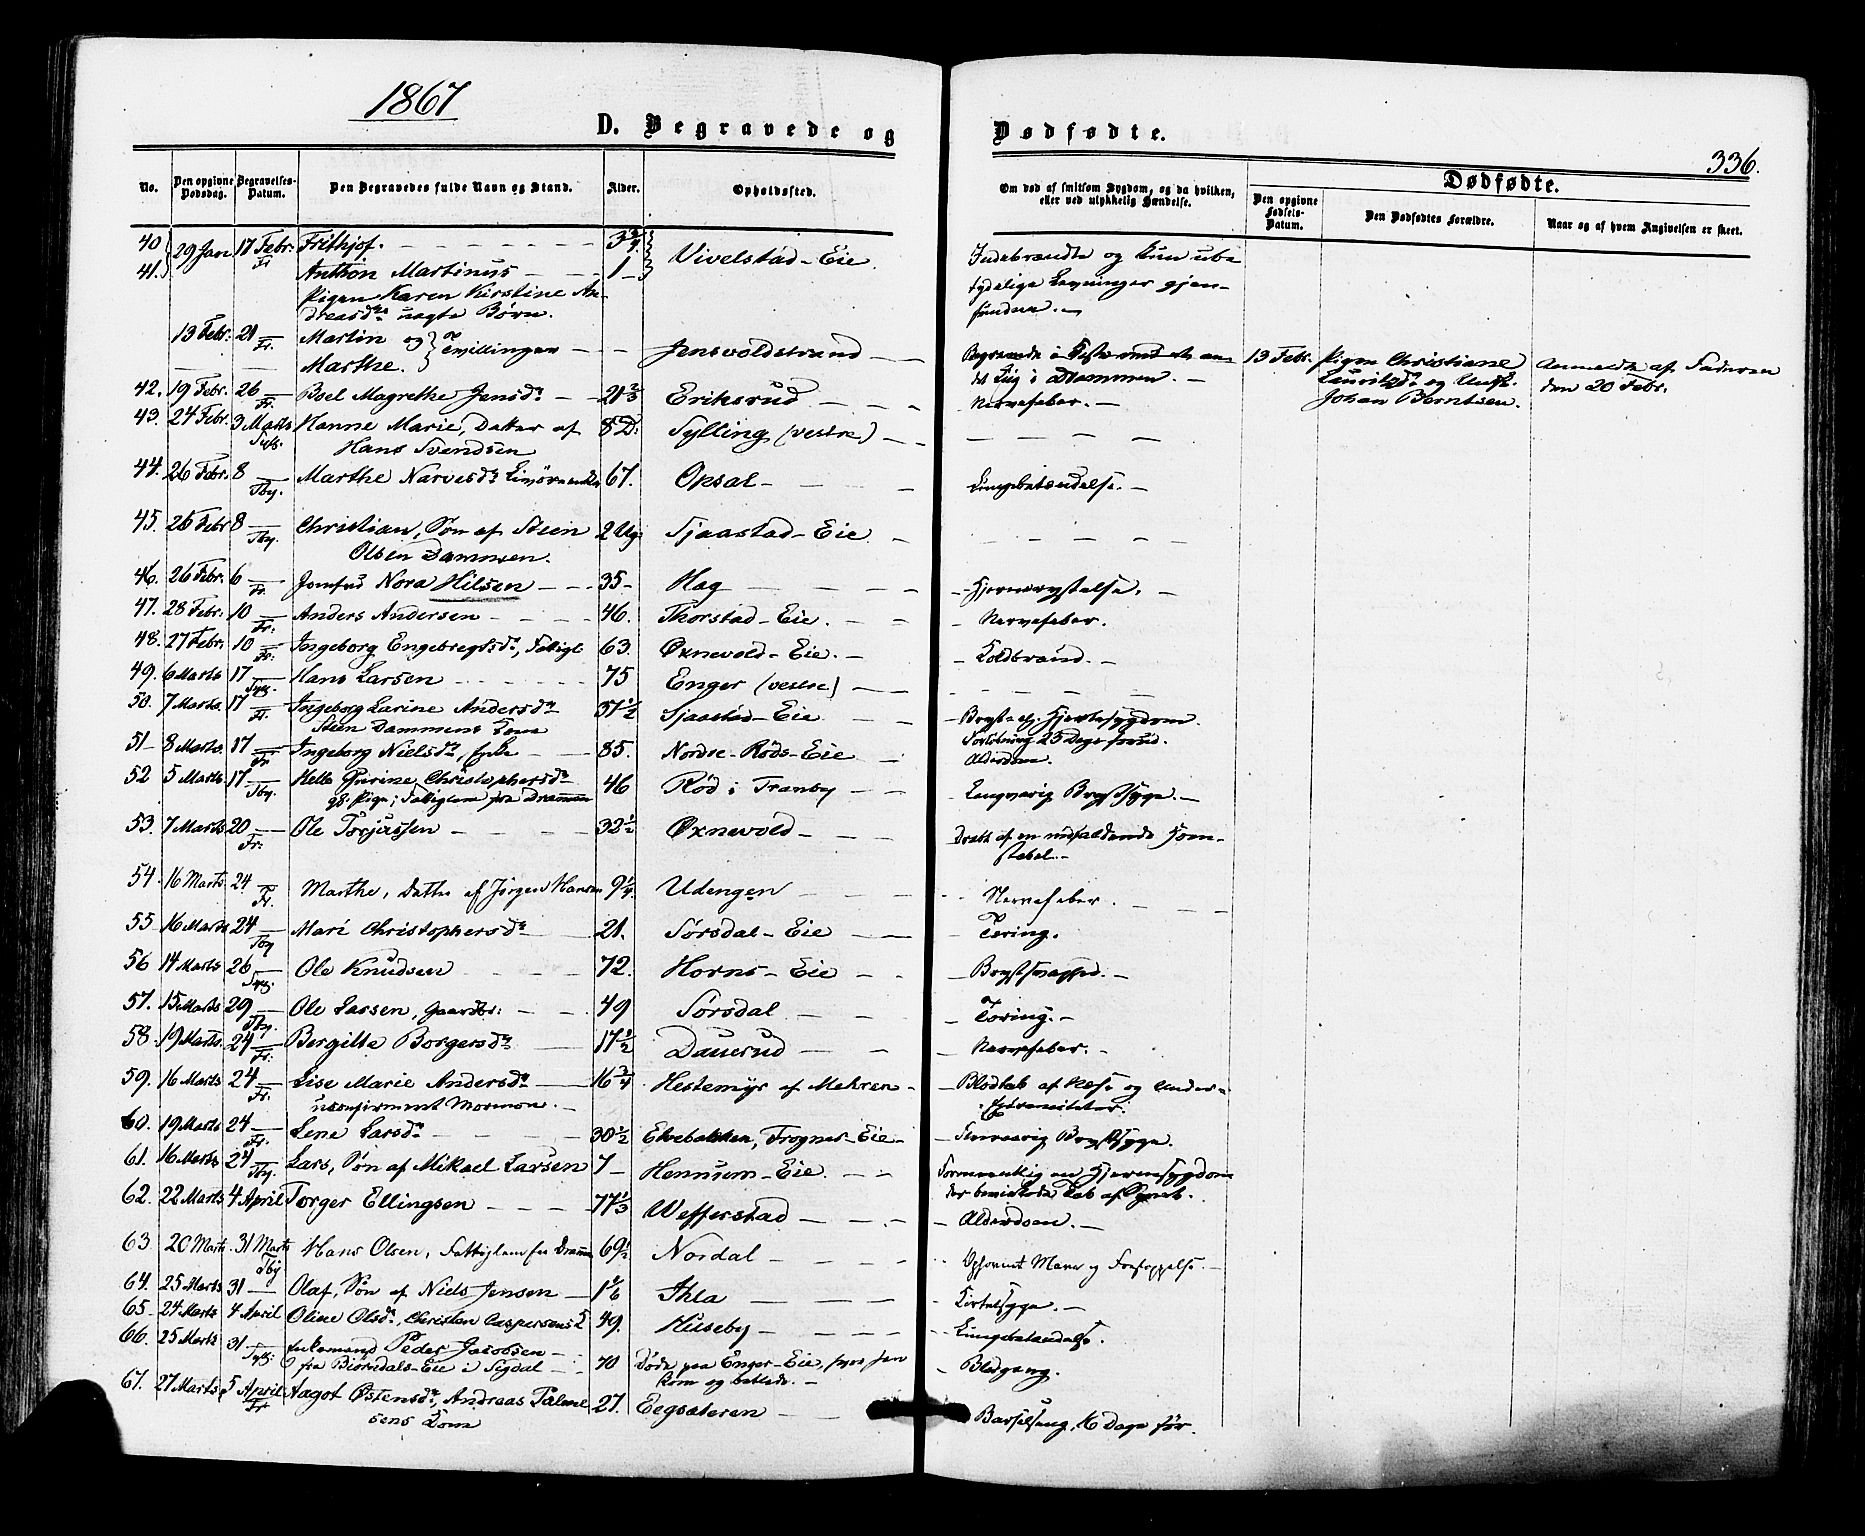 1867
D. Begravede og Dødfødte.
336.
No. Den opgivne Dødsdag. Begravelses-Datum. Den Begravedes fulde Navn og Stand. Alder. Opholdssted. Om død af smitsom Sygdom, og da hvilken, eller ved ulykkelig Hændelse. Dødfødte.
Den opgivne Fødsels-Datum. Den Dødfødtes Forældre. Naar og af hvem Angivelsen er skeet.
40 29 Jan 17 Febr. Fr Frithjof. 3 3/4 Vivelstad-Eie Indebrændte og kun ube
41. Anthon Martinus 1 tydelige Levninger gjen-
Pigen Karen Kirstine An- fundne.
dreasdr uægte Børn.
13 Febr. 21 Fr. Martin og Tvillinger Jensvoldstrand Begravede i Kiste med et an- 13 Febr. Pigen Christiane Anmeldt af Faderen
Marthe. det Liig i Drammen. Lauritsdr og Ungk. den 20 Febr.
Johan Berntsen.
42. 19 Febr. 26 Fr. Boel Magrethe Jensdr 21 2/3 Eriksrud Nervefeber.
43. 24 Febr. 3 Marts Syll. Hanne Marie, Datter af 8 D. Sylling (vestre)
Hans Svendsen
44. 26 Febr. 8 Tby. Marthe Narvesdr 67. Opsal Lungebetændelse.
45. 25 Febr 8 Tby. Christian, Søn af Steen 2 Ug. Sjaastad-Eie
Olsen Dammen.
46. 26 Febr. 6 Fr. Jomfru Nora Hilsen 35 Hag Hjernerystelse.
47. 28 Febr. 10 Fr. Anders Andersen 46. Thorstad-Eie. Nervefeber.
48. 27 Febr. 10 Fr. Ingeborg Engebregtsdr, Fattigl 63. Oxnevold-Eie. Koldbrand.
49. 6 Marts 17 Syll. Hans Larsen 75 Enger (vestre)
50. 7 Marts. 17 Fr. Ingeborg Larine Andersdr 37 1/2 Sjaastad-Eie. Bryst- og Hjertesygdom
Steen Dammens Kone Forløsning 25 Dage forud.
51 8 Marts. 17 Fr Ingeborg Nielsdr, Enke 85. Nordre-Røds-Eie Alderdom.
52 5 Marts 17 Tby. Helle Gurine Christophersdr 46 Rød i Tranby Langvarig Brystsyge.
gl. Pige; Fattiglem fra Drammen
53. 7 Marts 20 Fr. Ole Torjussen 32 1/2 Oxnevold Dræbt af en nedfaldende Tøm-
stabel.
54. 16 Marts 24 Fr. Marthe, Datter af Jørgen Hansen 9 1/4 Udengen Nervefeber.
55. 16 Marts 24 Tby Mari Christophersdr 21. Sørsdal-Eie Tæring.
56 14 Marts 26 Syll. Ole Knudsen 72. Horns-Eie Brystsvaghed.
57. 15 Marts 29 Tby. Ole Larsen, Gaardbr: 49 Sørsdal Tæring.
58. 19 Marts 24 Fr. Bergitte Borgersdr 17 1/2 Dauerud Nervefeber.
59. 16 Marts 24 Fr. Lise Marie Andersdr 16 3/4 Hestemyr af Mehren Blodtab af Næse og Under-
ukonfirmeret Mormon. Extremiteter.
60. 19 Marts 24 Fr. Lene Larsdr 30 1/2 Elvebakken, Frogner-Eie Brystsyge.
61. 16 Marts 24 Tby. Lars, Søn af Mikael Larsen 7 Hennum-Eie Formeentlig en Hjernesygdom
62. 22 Marts 4 April Torger Ellingsen 77 1/3 Wefferstad der bevirkede Tab af Synet.
Alderdom.
63. 20 Marts 31 Marts Tby Hans Olsen, Fattiglem fra Drammen 69 1/2 Nordal Ophovnet Mave og Forstoppelse.
64. 25 Marts 31 Olaf, Søn af Niels Jensen 1 1/6 Ihla Kirtelsyge.
65. 24 Marts 4 April Oline Olsdr, Christen Caspersens K 49. Hilseby Lungebetændelse.
66. 25 Marts 31 Syll. Enkemand Peder Jacobsen 70 Døde paa Enger-Eie, hvor han Blodgang.
fra Biørndals-Eie i Sigdal kom og betlede.
67. 27 Marts 5 April Fr Aagot Østensdr, Andreas 27. Eegsæteren Barselseng, 16 Dage før.
sens Kone